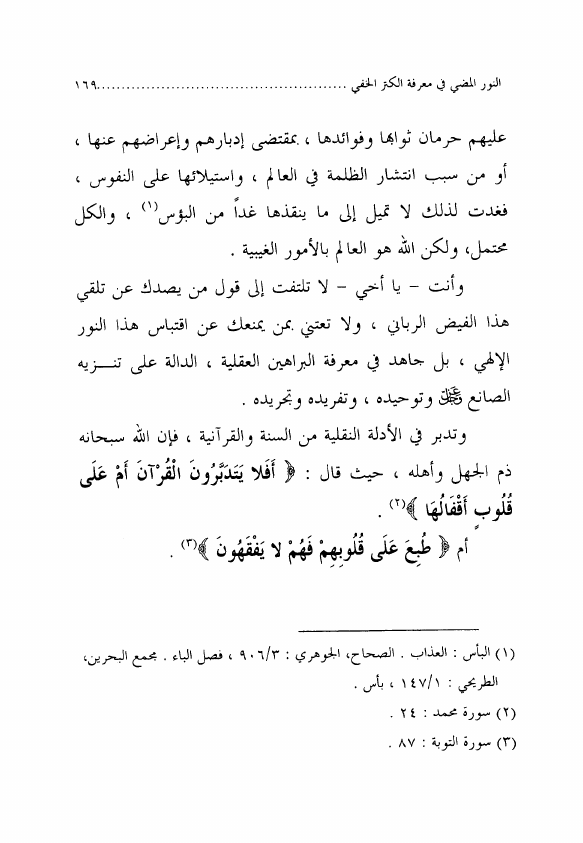 النور المضي في معرفة الكتر الخفي ................................................١٦٩
عليهم حرمان ثوابها وفوائدها ، بمقتضى إدبارهم وإعراضهم عنها ،
أو من سبب انتشار الظلمة في العالم ، واستيلائها على النفوس ،
فغدت لذلك لا تميل إلى ما ينقذها غداً من البؤس(١) ، والكل
محتمل، ولكن الله هو العالم بالأمور الغيبية .
وأنت – يا أخي – لا تلتفت إلى قول من يصدك عن تلقي
هذا الفيض الرباني ، ولا تعتني بمن يمنعك عن اقتباس هذا النور
الإلهي ، بل جاهد في معرفة البراهين العقلية ، الدالة على تنـــزيه
الصانع عز وجل وتوحيده ، وتفريده وتجريده .
وتدبر في الأدلة النقلية من السنة والقرآنية ، فإن الله سبحانه
ذم الجهل وأهله ، حيث قال : ﴿ أَفَلا يَتَدَبَّرُونَ الْقُرْآنَ أَمْ عَلَى
قُلُوبٍ أَقْفَالُهَا ﴾(٢) .
أم ﴿ طُبِعَ عَلَى قُلُوبِهِمْ فَهُمْ لا يَفْقَهُونَ ﴾(٣) .
(١) البأس : العذاب . الصحاح، الجوهري : ٩٠٦/٣ ، فصل الباء . مجمع البحرين،
الطريحي : ١٤٧/١ ، بأس .
(٢) سورة محمد : ٢٤ .
(٣) سورة التوبة : ٨٧ .